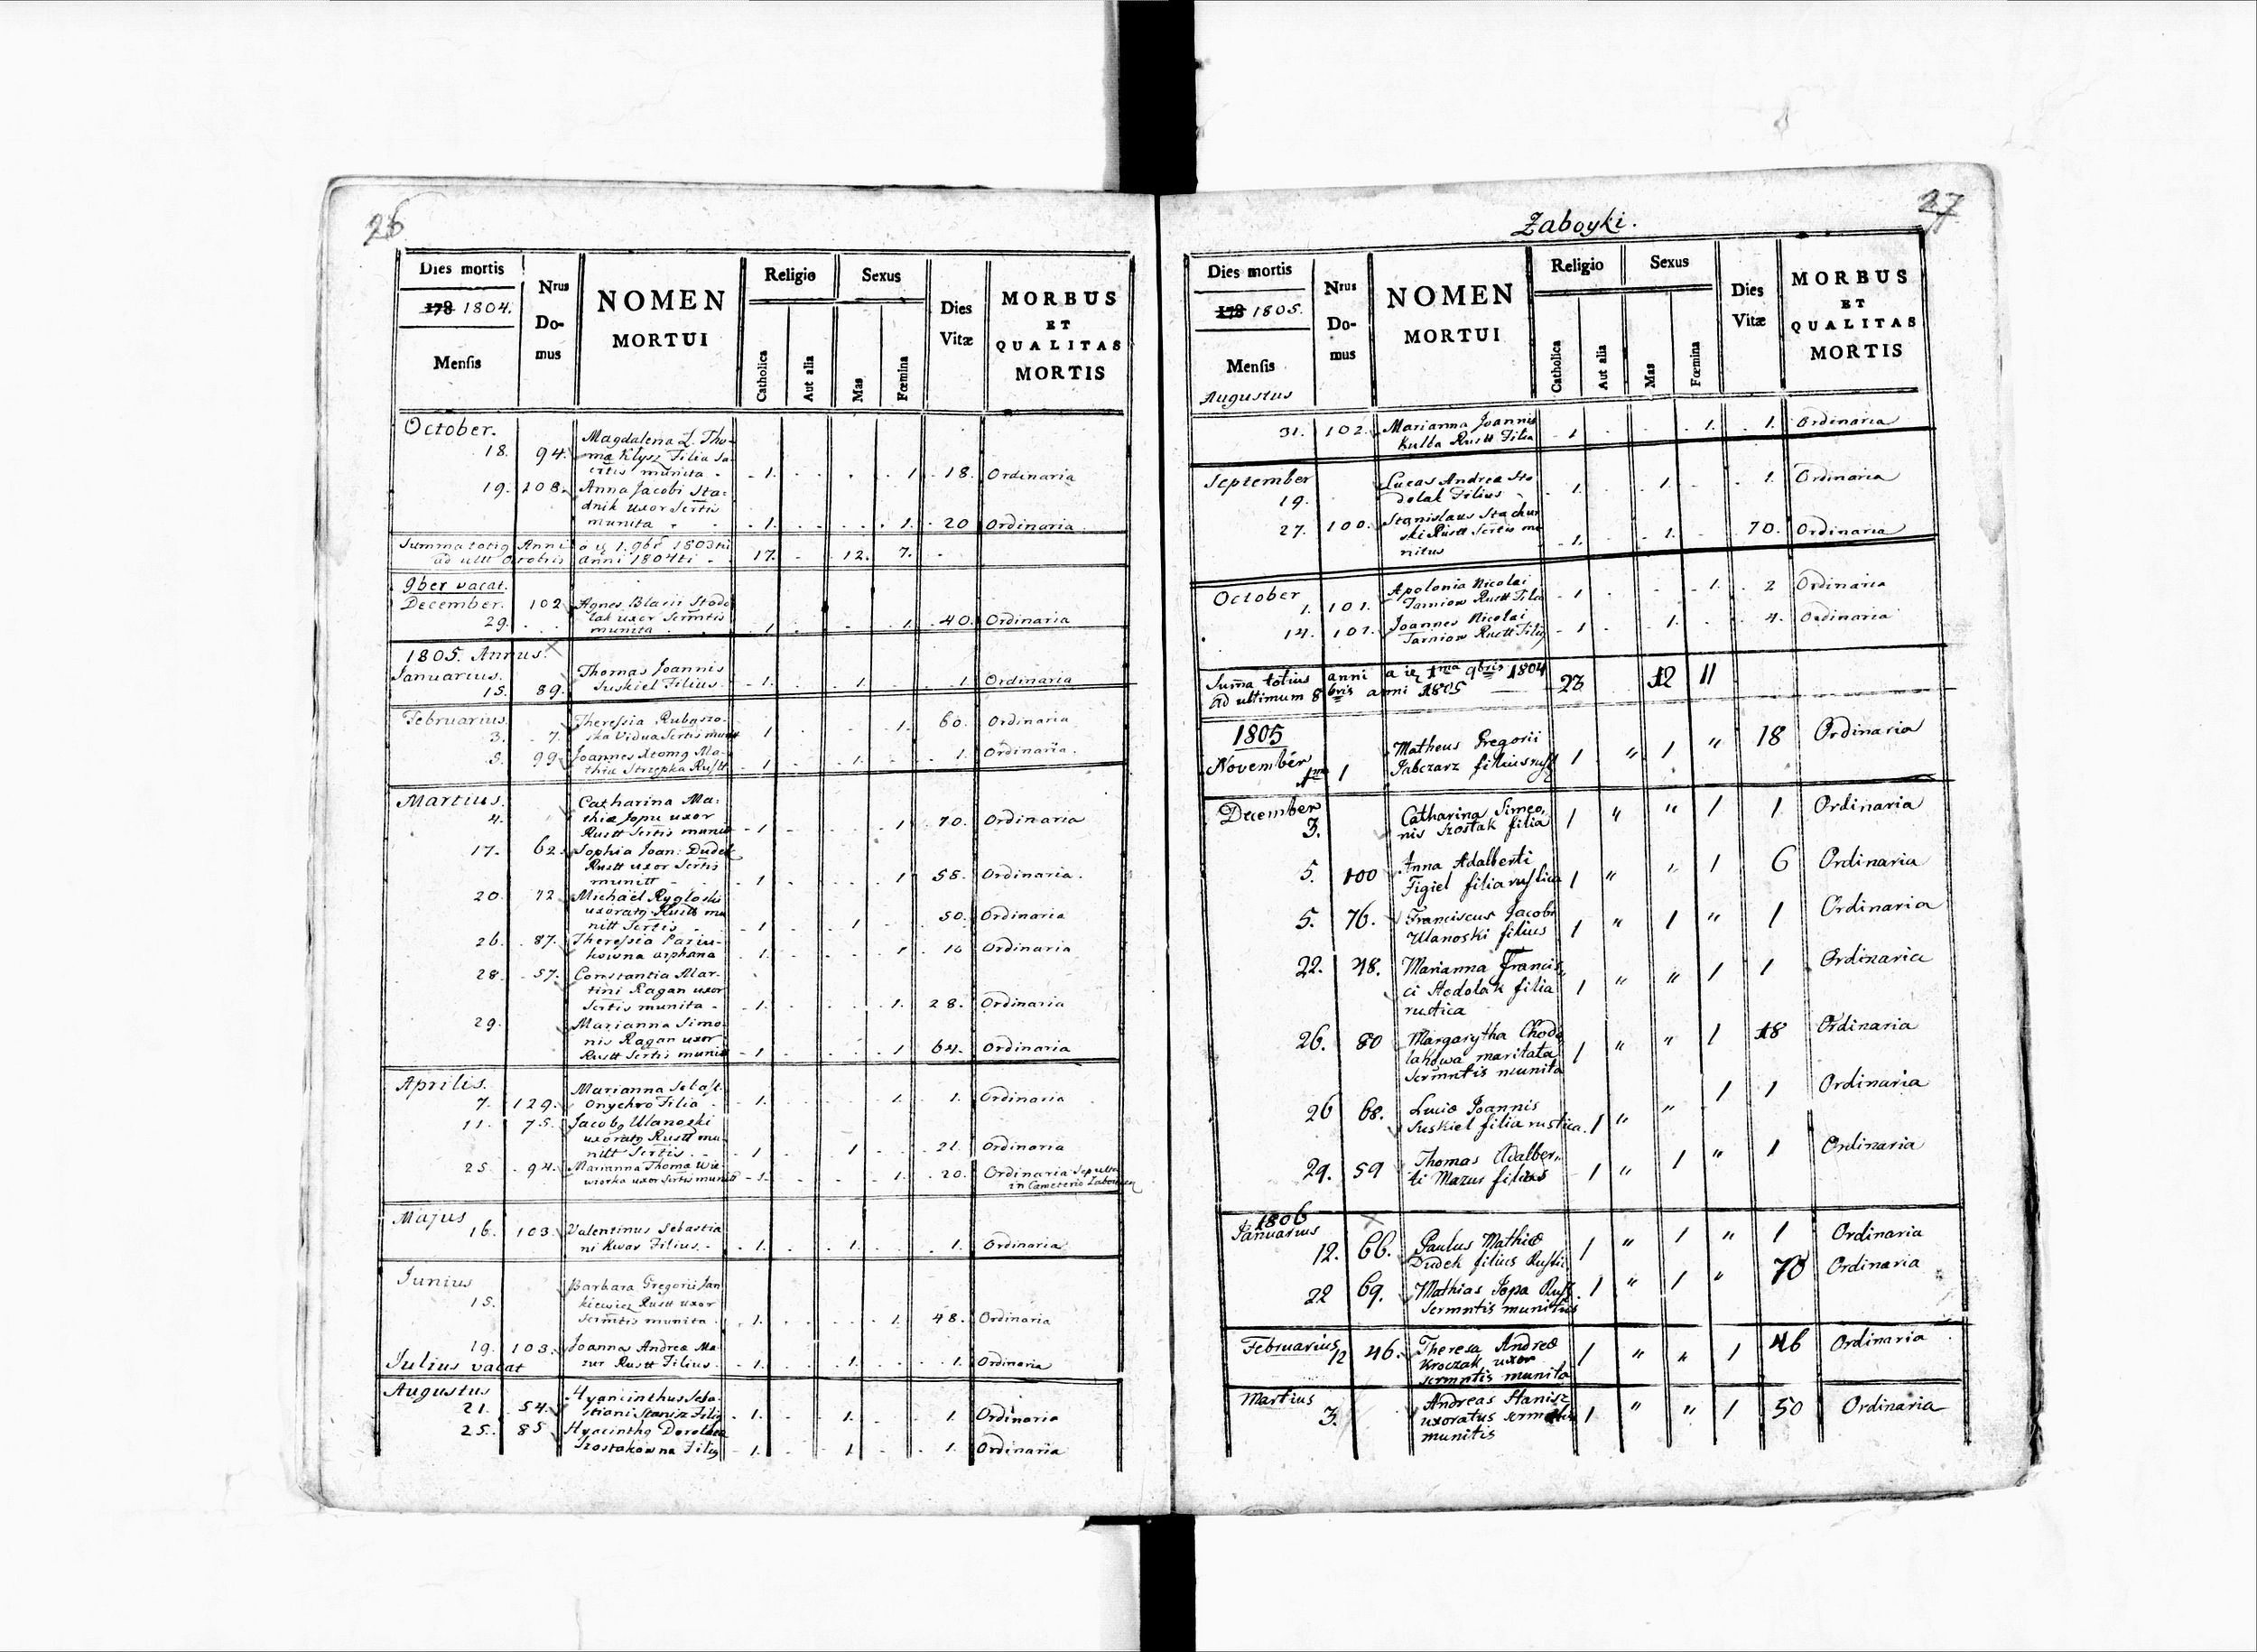 26
Dies mortis
178 1804.
Mensis
Nrus
Do-
mus
NOMEN
MORTUI
Religio
Catholica
Aut alia
Sexus
Mas
Fœmina
Dies
Vitæ
MORBUS
ET
QUALITAS
MORTIS
October.
18. 94. Magdalena L. Tho-
ma Klysz Filia Sa-
crtis munita - 1. 1 18. Ordinaria
19. 108. Anna Jacobi Sta-
dnik uxor Scrtis
munita 1. 1. 20 Ordinaria
Summa totig Anni a ię 1. 9br 1803tii
ad ultt Octobris Anni 1804ti 17. 12. 7.
9ber vacat.
December. 102 Agnes Blasii Stodo
29. lak uxor Scrmtis
munita 1 1. 40. Ordinaria
1805. Annus.
Januarius. Thomas Joannis
15. 89. Suskiel Filius. 1. 1. 1. Ordinaria
Februarius. Theressia Rubaszo-
3. 7. ska Vidua Scrtis munit 1 1. 60. Ordinaria
5. 99. Joannes Xtomg Ma-
thia Strzępka Rustt 1. 1. 1. Ordinaria.
Martius. Catharina Ma-
4. thia Jopa uxor
Rustt Scrtis munit 1 1 70. Ordinaria
17. 62. Sophia Joan: Dudek
Rustt uxor Scrtis
munitt 1 1 58. Ordinaria.
20. 72 Michaël Rygloski
uxoratg Rustt mu
nitt Scrtis 1 1 50. Ordinaria
26. 87. Theressia Pariu-
kowna orphana 1. 1 10 Ordinaria
28. 57. Constantia Mar-
tini Ragan uxor
Scrtis munita - 1. 1. 28. Ordinaria
29. Marianna Simo
nis Ragan uxor
Rustt Scrtis munit 1 1 64. Ordinaria
Aprilis. Marianna Sebast.
7. 129. Onychro Filia 1. 1. 1. Ordinaria
11. 75. Jacobg Ulanoski
uxoratg Rustt mu
nitt Scrtis 1 1 21. Ordinaria
25. 94. Marianna Thoma Wie
wiorka uxor Scrtis munit 1. 1. 20. Ordinaria Sepulta
in Cameterio
Majus
16. 103. Valentinus Sebastia
ni Kwar Filius. 1. 1. 1. Ordinaria
Junius Barbara Gregorii Jan
15. kiewicz Rustt uxor
Scrmtis munita 1. 1. 48. Ordinaria
19. 103. Joannes Andrea Ma
zur Rustt Filius 1. 1. 1. Ordinaria
Julius vacat
Augustus Hyacinthus Seba-
21. 54. stiani Stanisz Filig 1. 1. 1. Ordinaria
25. 85. Hyacinthg Dorothea
Szostakowna Filig 1. 1. 1. Ordinaria
27
Zaboyki.
Dies mortis
178 1805.
Mensis
Nrus
Do-
mus
NOMEN
MORTUI
Religio
Catholica
Aut alia
Sexus
Mas
Fœmina
Dies
Vitæ
MORBUS
ET
QUALITAS
MORTIS
Augustus
31. 102. Marianna Joannis
Kulba Rustt Filia 1 1. 1. Ordinaria
September Lucas Andrea Sto
19. dolak Filius 1. 1. 1. Ordinaria
27. 100. Stanislaus Stachur
ski Rustt Scrtis mu
nitus 1. 1. 70. Ordinaria
October Apolonia Nicolai
1. 101. Tarniow Rustt Filia 1 1. 2 Ordinaria
14. 101. Joannes Nicolai
Tarniow Rustt Filig 1 1. 4. Ordinaria
Suma totius anni a ię 1ma 9bris 1804
ad ultimum 8bris anni 1805 23 12 11
1805
November Matheus Gregorii
1ma 1 Jabczarz filius rust 1 " 1 " 18 Ordinaria
December Catharina Simeo,
3. nis Szostak filia 1 " " 1 1 Ordinaria
5. 100 Anna Adalberti
Figiel filia rustica 1 " " 1 6 Ordinaria
5. 76. Franciscus Jacobi
Ulanoski filius 1 " 1 " 1 Ordinaria
22. 48. Marianna Francis,
ci Stodolak filia
rustica 1 " " 1 1 Ordinaria
26. 80 Margarytha Chodo
lakowa maritata
Scrmntis munita 1 " " 1 18 Ordinaria
26 68. Lucia Joannis
Suskiel filia rustica. 1 " " 1 1 Ordinaria
29. 59 Thomas Adalber,
ti Mazus filius 1 " 1 " 1 Ordinaria
1806
Januarius
12. 66. Paulus Mathiæ
Dudek filius Rusti 1 " 1 " 1 Ordinaria
22 69. Mathias Jopa Rust.
Scrmntis munitus 1 " 1 " 70 Ordinaria
Februarius
12 46. Theresa Andreæ
Kroczak uxor
scrmntis munita 1 " " 1 46 Ordinaria
Martius
3. Andreas Stanisz
uxoratus scrmntis
munitis 1 " " 1 50 Ordinaria